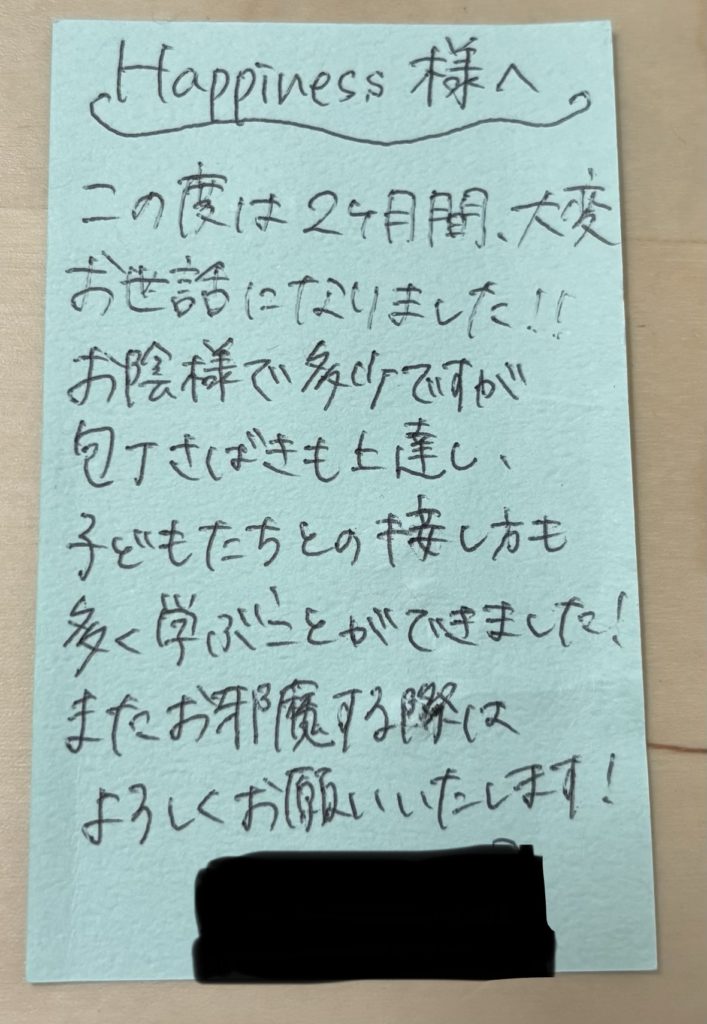 Happiness 様へ
この度は2ヶ月間、大変
お世話になりました!!
お陰様で多少ですが
包丁さばきも上達し、
子どもたちとの接し方も
多く学ぶことができました!
またお邪魔する際は
よろしくお願いいたします!